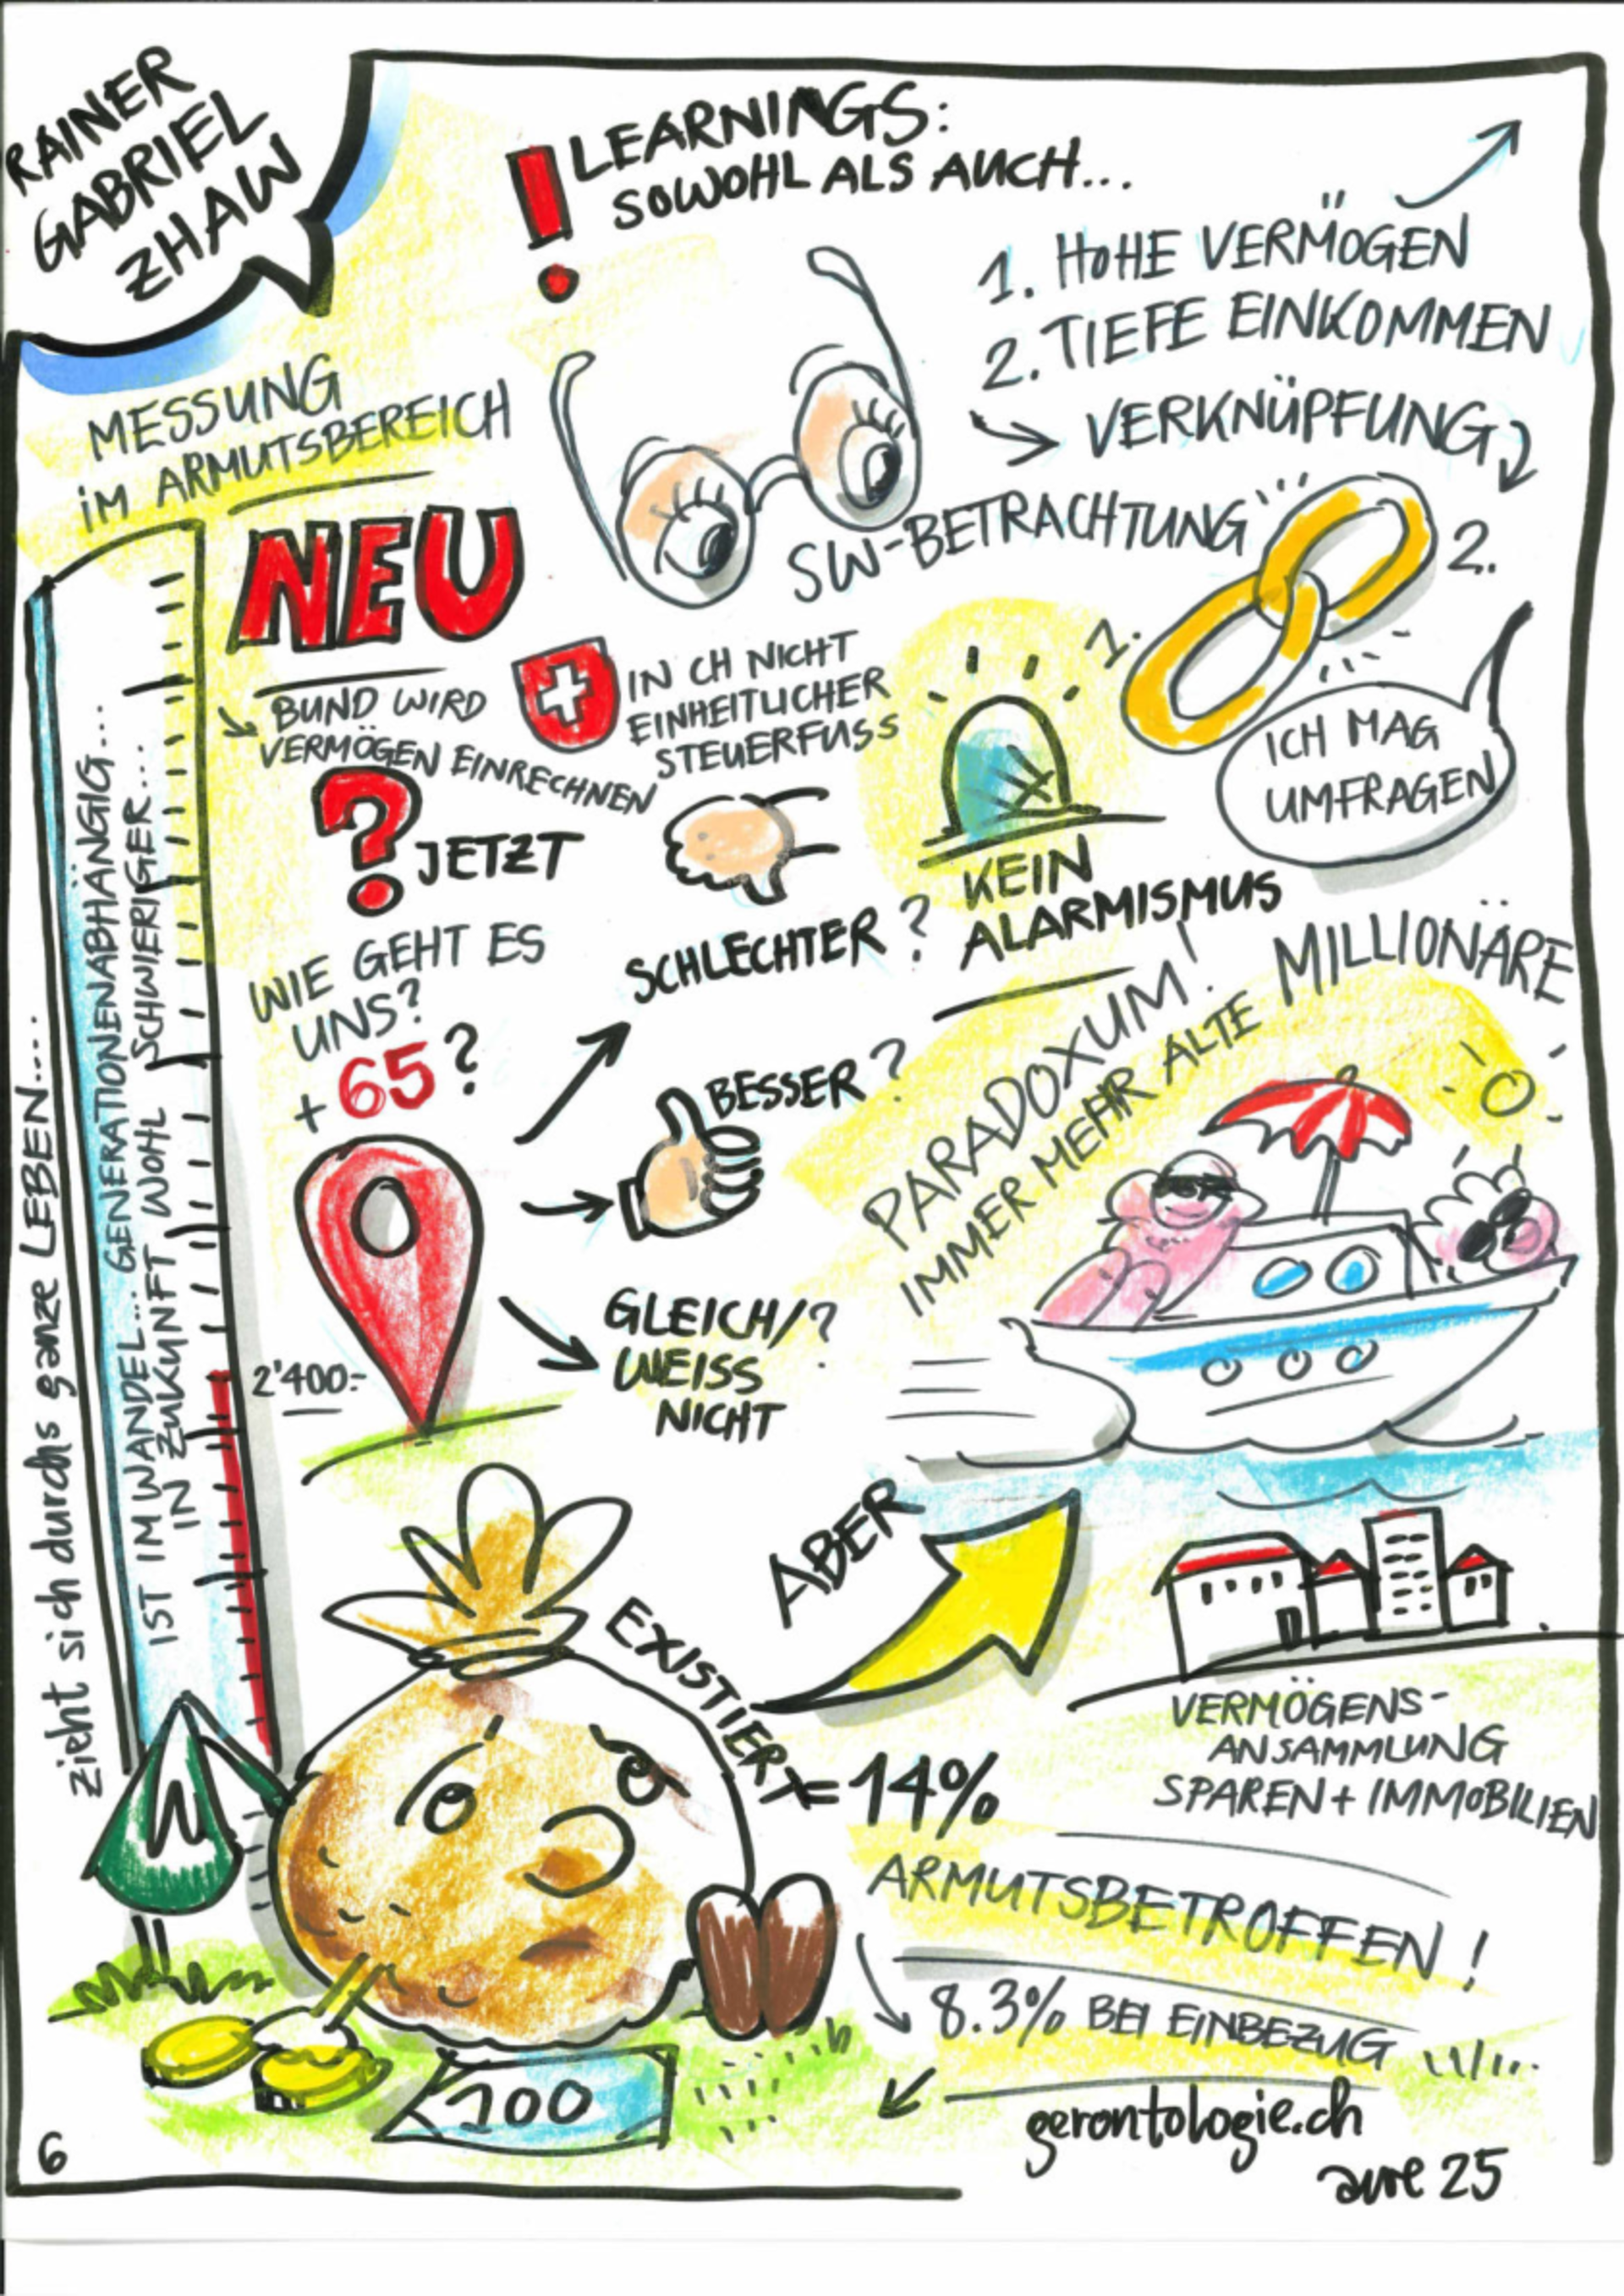 RAINER
GABRIEL
ZHAW
! LEARNINGS:
SOWOHL ALS AUCH...
1. HOHE VERMÖGEN
2. TIEFE EINKOMMEN
VERKNÜPFUNG
SW-BETRACHTUNG
2.
1.
ICH MAG
UMFRAGEN
MESSUNG
IM ARMUTSBEREICH
NEU
BUND WIRD
VERMÖGEN EINRECHNEN
IN CH NICHT
EINHEITLICHER
STEUERFUSS
KEIN
ALARMISMUS
? JETZT
WIE GEHT ES
UNS?
+65?
SCHLECHTER?
BESSER?
GLEICH/?
WEISS
NICHT
PARADOXUM!
IMMER MEHR ALTE MILLIONÄRE
zieht sich durchs ganze LEBEN....
IST IM WANDEL... GENERATIONENABHÄNGIG...
IN ZUKUNFT WOHL SCHWIERIGER...
2'400.-
ABER
EXISTIERT = 14%
ARMUTSBETROFFEN!
8.3% BEI EINBEZUG
VERMÖGENS-
ANSAMMLUNG
SPAREN + IMMOBILIEN
100
gerontologie.ch
aure 25
6